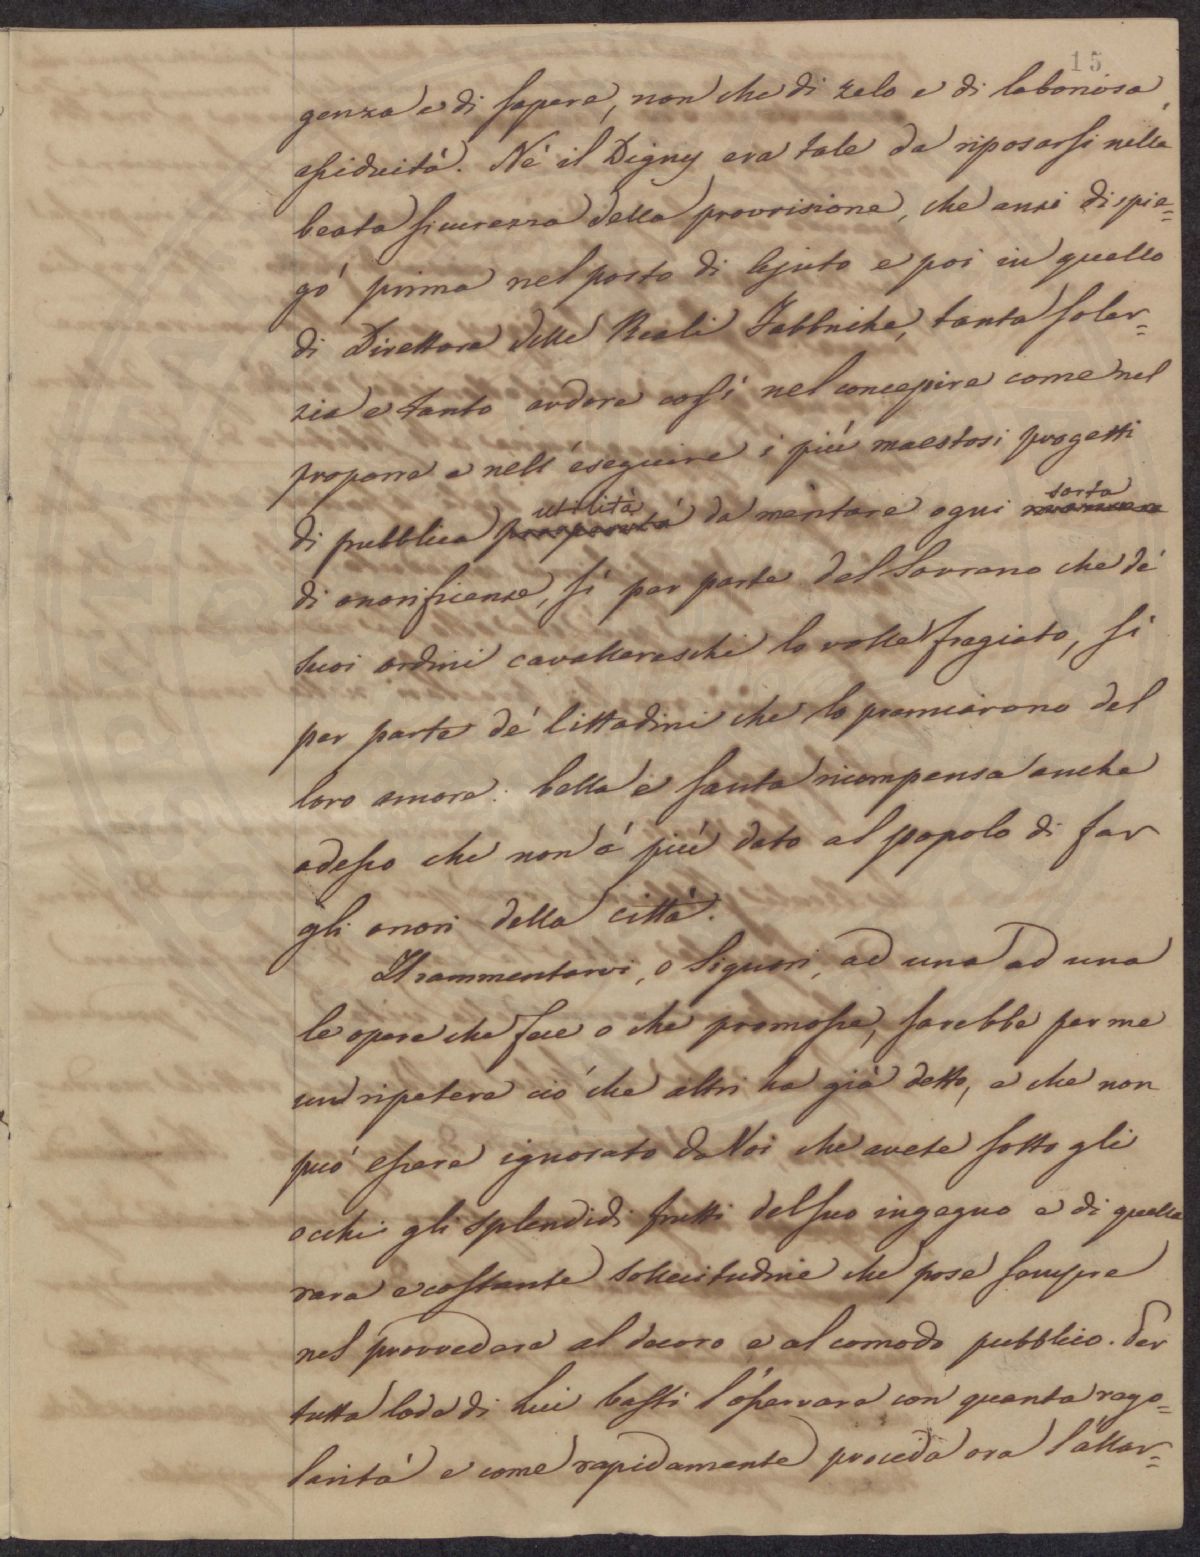 15
genza e di sapere, non che di zelo e di laboriosa
assiduità. Nè il Digny era tale da riposarsi nella
beata sicurezza della provvisione, che anzi dispie=
gò prima nel posto di Ajuto e poi in quello
di Direttore delle Reali Fabbriche, tanta soler=
zia e tanto ardore così nel concepire come nel
proporre e nell'eseguire i più maestosi progetti
di pubblica utilità da meritare ogni sorta
di onorificenze, sì per parte del Sovrano che de'
suoi ordini cavallereschi lo volle fregiato, sì
per parte de' Cittadini che lo premiarono del
loro amore: bella e santa ricompensa anche
adesso che non è più dato al popolo di far
gli onori della città.
Il rammentarvi, o Signori, ad una ad una
le opere che fece o che promosse, sarebbe per me
un ripetere ciò che altri ha già detto, e che non
può essere ignorato da Voi che avete sotto gli
occhi gli splendidi frutti del suo ingegno e di quella
rara e costante sollecitudine che pose sempre
nel provvedere al decoro e al comodo pubblico. Per
tutta lode di Lui basti l'osservare con quanta rego=
larità e come rapidamente proceda ora l'allar=